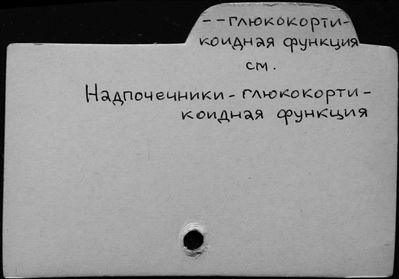 --глюкокорти-
коидная функция
см.
Надпочечники-глюкокорти-
коидная функция